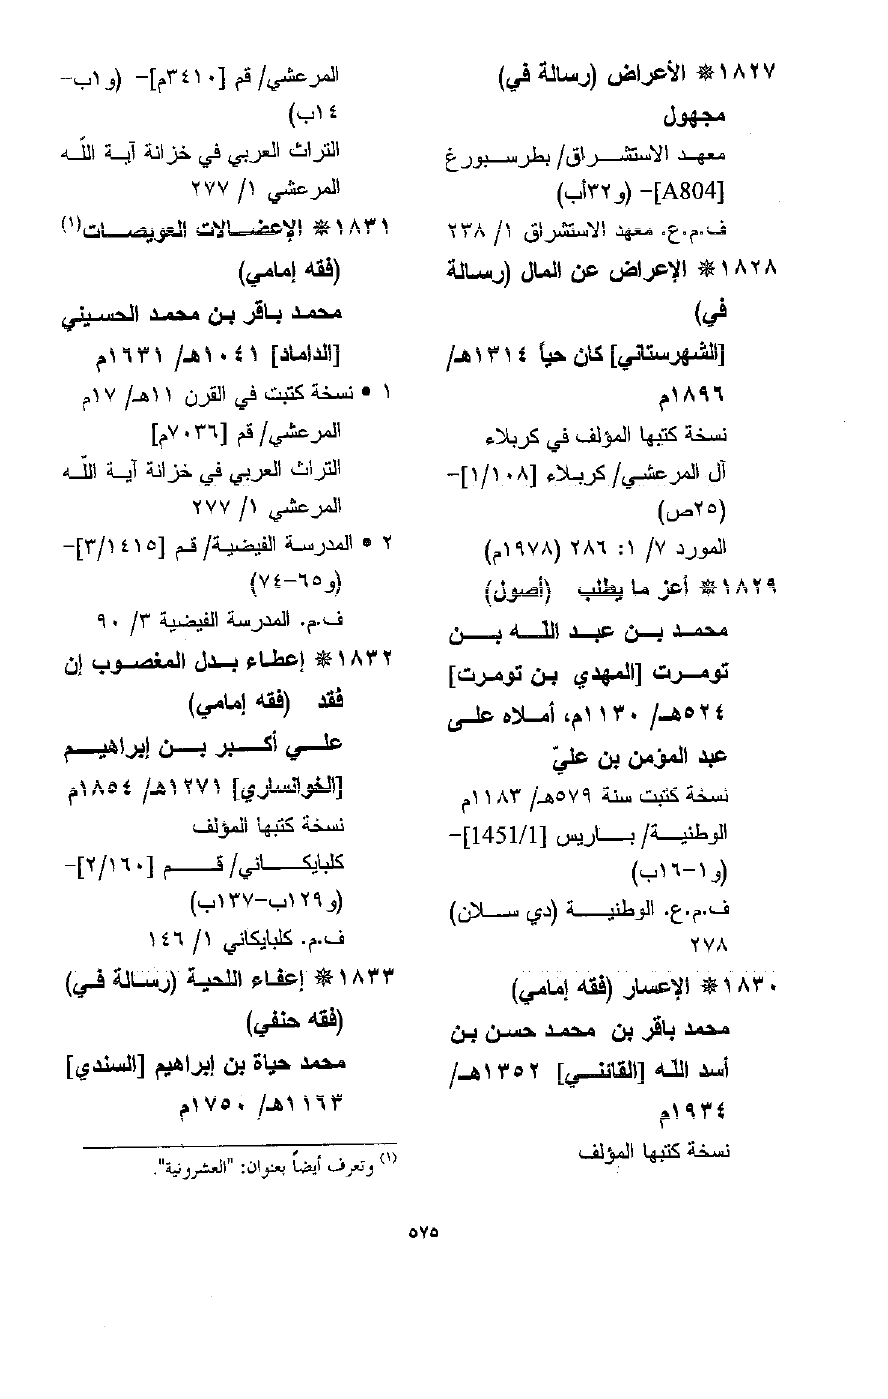 ١٨٢٧ ❋ الأعراض (رسالة في)
مجهول
معهد الاستشراق/ بطرسبورغ
[A804]– (و٣٢أب)
ف.م.ع. معهد الاستشراق ١/ ٢٣٨
١٨٢٨ ❋ الإعراض عن المال (رسالة
في)
[الشهرستاني] كان حياً ١٣١٤هـ/
١٨٩٦م
نسخة كتبها المؤلف في كربلاء
آل المرعشي/ كربلاء [١/١٠٨]–
(٢٥ص)
المورد ٧/ ١: ٢٨٦ (١٩٧٨م)
١٨٢٩ ❋ أعز ما يطلب (أصول)
محمد بن عبد الله بن
تومرت [المهدي بن تومرت]
٥٢٤هـ/ ١١٣٠م، أملاه على
عبد المؤمن بن عليّ
نسخة كتبت سنة ٥٧٩هـ/ ١١٨٣م
الوطنية/ باريس [1451/1]–
(و١–١٦ب)
ف.م.ع. الوطنية (دي سلان)
٢٧٨
١٨٣٠ ❋ الإعسار (فقه إمامي)
محمد باقر بن محمد حسن بن
أسد الله [القائني] ١٣٥٢هـ/
١٩٣٤م
نسخة كتبها المؤلف
المرعشي/ قم [٣٤١٠م]– (و١ب–
١٤ب)
التراث العربي في خزانة آية اللّه
المرعشي ١/ ٢٧٧
١٨٣١ ❋ الإعضالات العويصات(١)
(فقه إمامي)
محمد باقر بن محمد الحسيني
[الداماد] ١٠٤١هـ/ ١٦٣١م
١ • نسخة كتبت في القرن ١١هـ/ ١٧م
المرعشي/ قم [٧٠٣٦م]
التراث العربي في خزانة آية اللّه
المرعشي ١/ ٢٧٧
٢ • المدرسة الفيضية/ قم [٣/١٤١٥]–
(و٦٥–٧٤)
ف.م. المدرسة الفيضية ٣/ ٩٠
١٨٣٢ ❋ إعطاء بدل المغصوب إن
فقد (فقه إمامي)
علي أكبر بن إبراهيم
[الخوانساري] ١٢٧١هـ/ ١٨٥٤م
نسخة كتبها المؤلف
كلبايكاني/ قم [٢/١٦٠]–
(و١٢٩ب–١٣٧ب)
ف.م. كلبايكاني ١/ ١٤٦
١٨٣٣ ❋ إعفاء اللحية (رسالة في)
(فقه حنفي)
محمد حياة بن إبراهيم [السندي]
١١٦٣هـ/ ١٧٥٠م
(١) وتعرف أيضاً بعنوان: "العشرونية".
٥٧٥